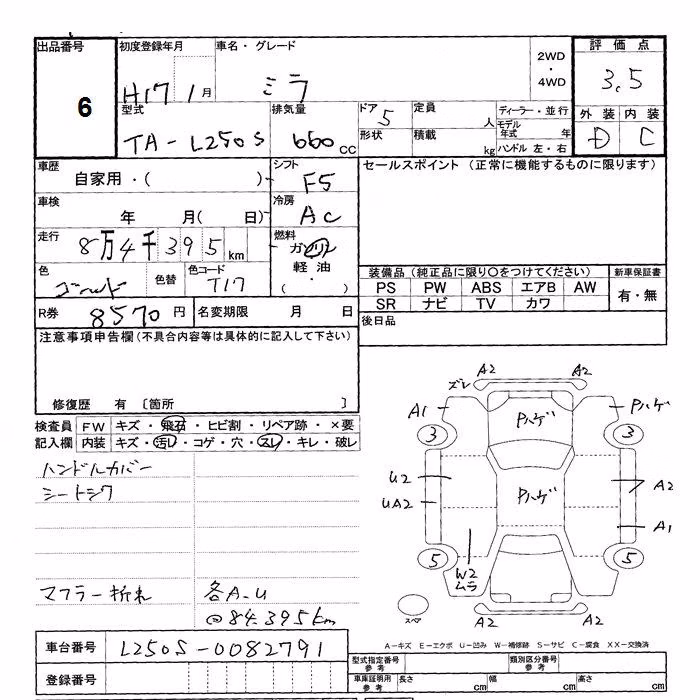 出品番号 初度登録年月 車名・グレード 2WD・4WD 評価点
6 H17 1月 ミラ 3.5
型式 排気量 ドア 5 定員 人 ディーラー・並行 外装 内装
TA-L250S 660cc 形状 積載 kg モデル年式 年 ハンドル 左・右 D C
車歴 自家用・( ) シフト F5 セールスポイント (正常に機能するものに限ります)
車検 年 月( 日) 冷房 AC
走行 8万4千395km 燃料 ガソリン
色 ゴールド 色替 色コード T17 軽油・( ) 装備品 (純正品に限り○をつけてください) 新車保証書
PS PW ABS エアB AW 有・無
SR ナビ TV カワ
R券 8570円 名変期限 月 日 後日品
注意事項申告欄 (不具合内容等は具体的に記入して下さい)
修復歴 有 〔箇所 〕
検査員 FW キズ・飛石・ヒビ割・リペア跡・×要
記入欄 内装 キズ・汚レ・コゲ・穴・スレ・キレ・破レ
ハンドルカバー
シートシワ
マフラー折れ 各A.U
@84.395km
A2 A2
ズレ
A1 Pハゲ Pハゲ
3 3
U2 Pハゲ A2
UA2
A1
5 5
W2
ムラ
スペア A2 A2
A-キズ E-エクボ U-凹み W-補修跡 S-サビ C-腐食 XX-交換済
車台番号 L250S-0082791 型式指定番号 参考 類別区分番号 参考
登録番号 車庫証明用 参考 長さ cm 幅 cm 高さ cm